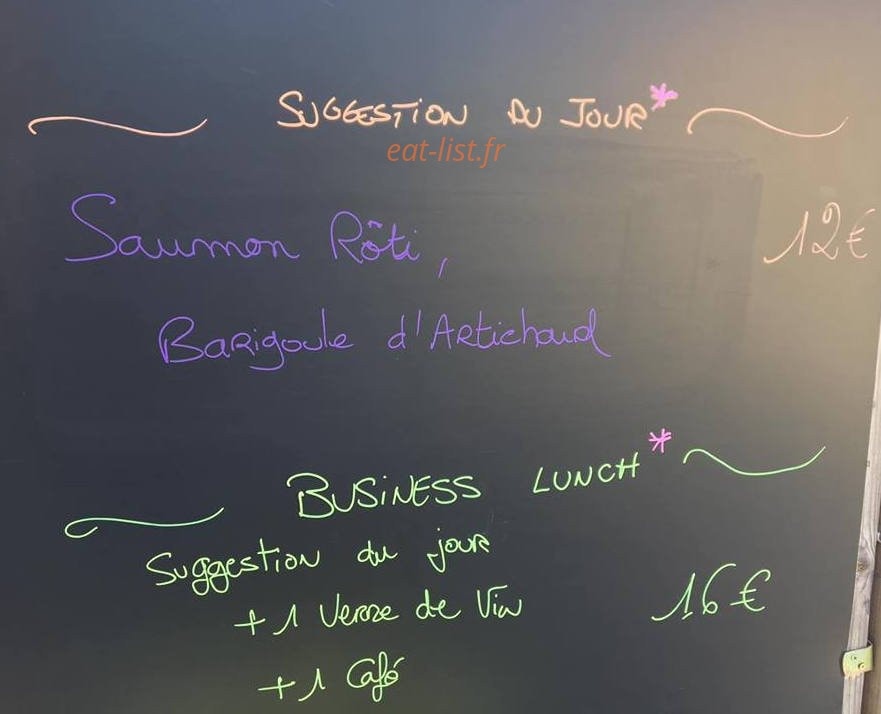 SUGGESTION DU JOUR*
eat-list.fr
Saumon Rôti, 12€
Barigoule d'Artichaud
BUSINESS LUNCH*
Suggestion du jour
+ 1 Verre de Vin 16€
+ 1 Café